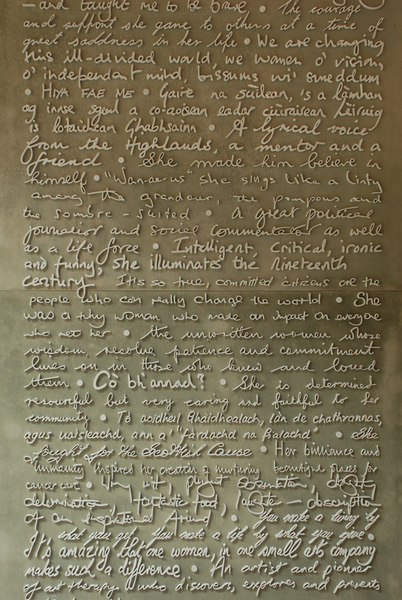 — and taught me to be brave • The courage
and support she gave to others at a time of
great saddness in her life • We are changing
this ill-divided world, we women o' vision,
o' independent mind, bissums wi' smeddum
• HIYA FAE ME • Gaire na sùilean, is a làmhan
ag innse sgeul a co-aoisean eadar cùirtairean
is
• A lyrical voice
from the Highlands, a mentor and a
friend • She made him believe in
himself • "Wan-ae-us" she sings like a linty
among the grandeur, the pompous and
the sombre-suited • A great political
journalist and social commentator as well
as a life force • Intelligent, critical, ironic
and funny, she illuminates the Nineteenth
century • It's so true, committed citizens are the
people who can really change the world • She
was a tiny woman who made an impact on everyone
who met her • the unwritten woman whose
wisdom, resolve patience and commitment
lives on in those who knew and loved
them • Cò bh'annad? • She is determined
resourceful but very caring and faithful to her
community • Tè aoidheil Ghàidhealach, làn de chathrannas,
agus uaisleachd, ann a "Fàrdachd na Balachd" • She
fought for the Scottish Cause • Her brilliance and
humanity inspired her creation of nurturing beautiful places for
cancer care •
determination, fantastic food, laughter —
of an inspirational friend • You make a living by
what you get, You make a life by what you give •
It's amazing that one woman, in one small arts company
makes such a difference • An artist and pioneer
of art therapy who discovers, explores and presents